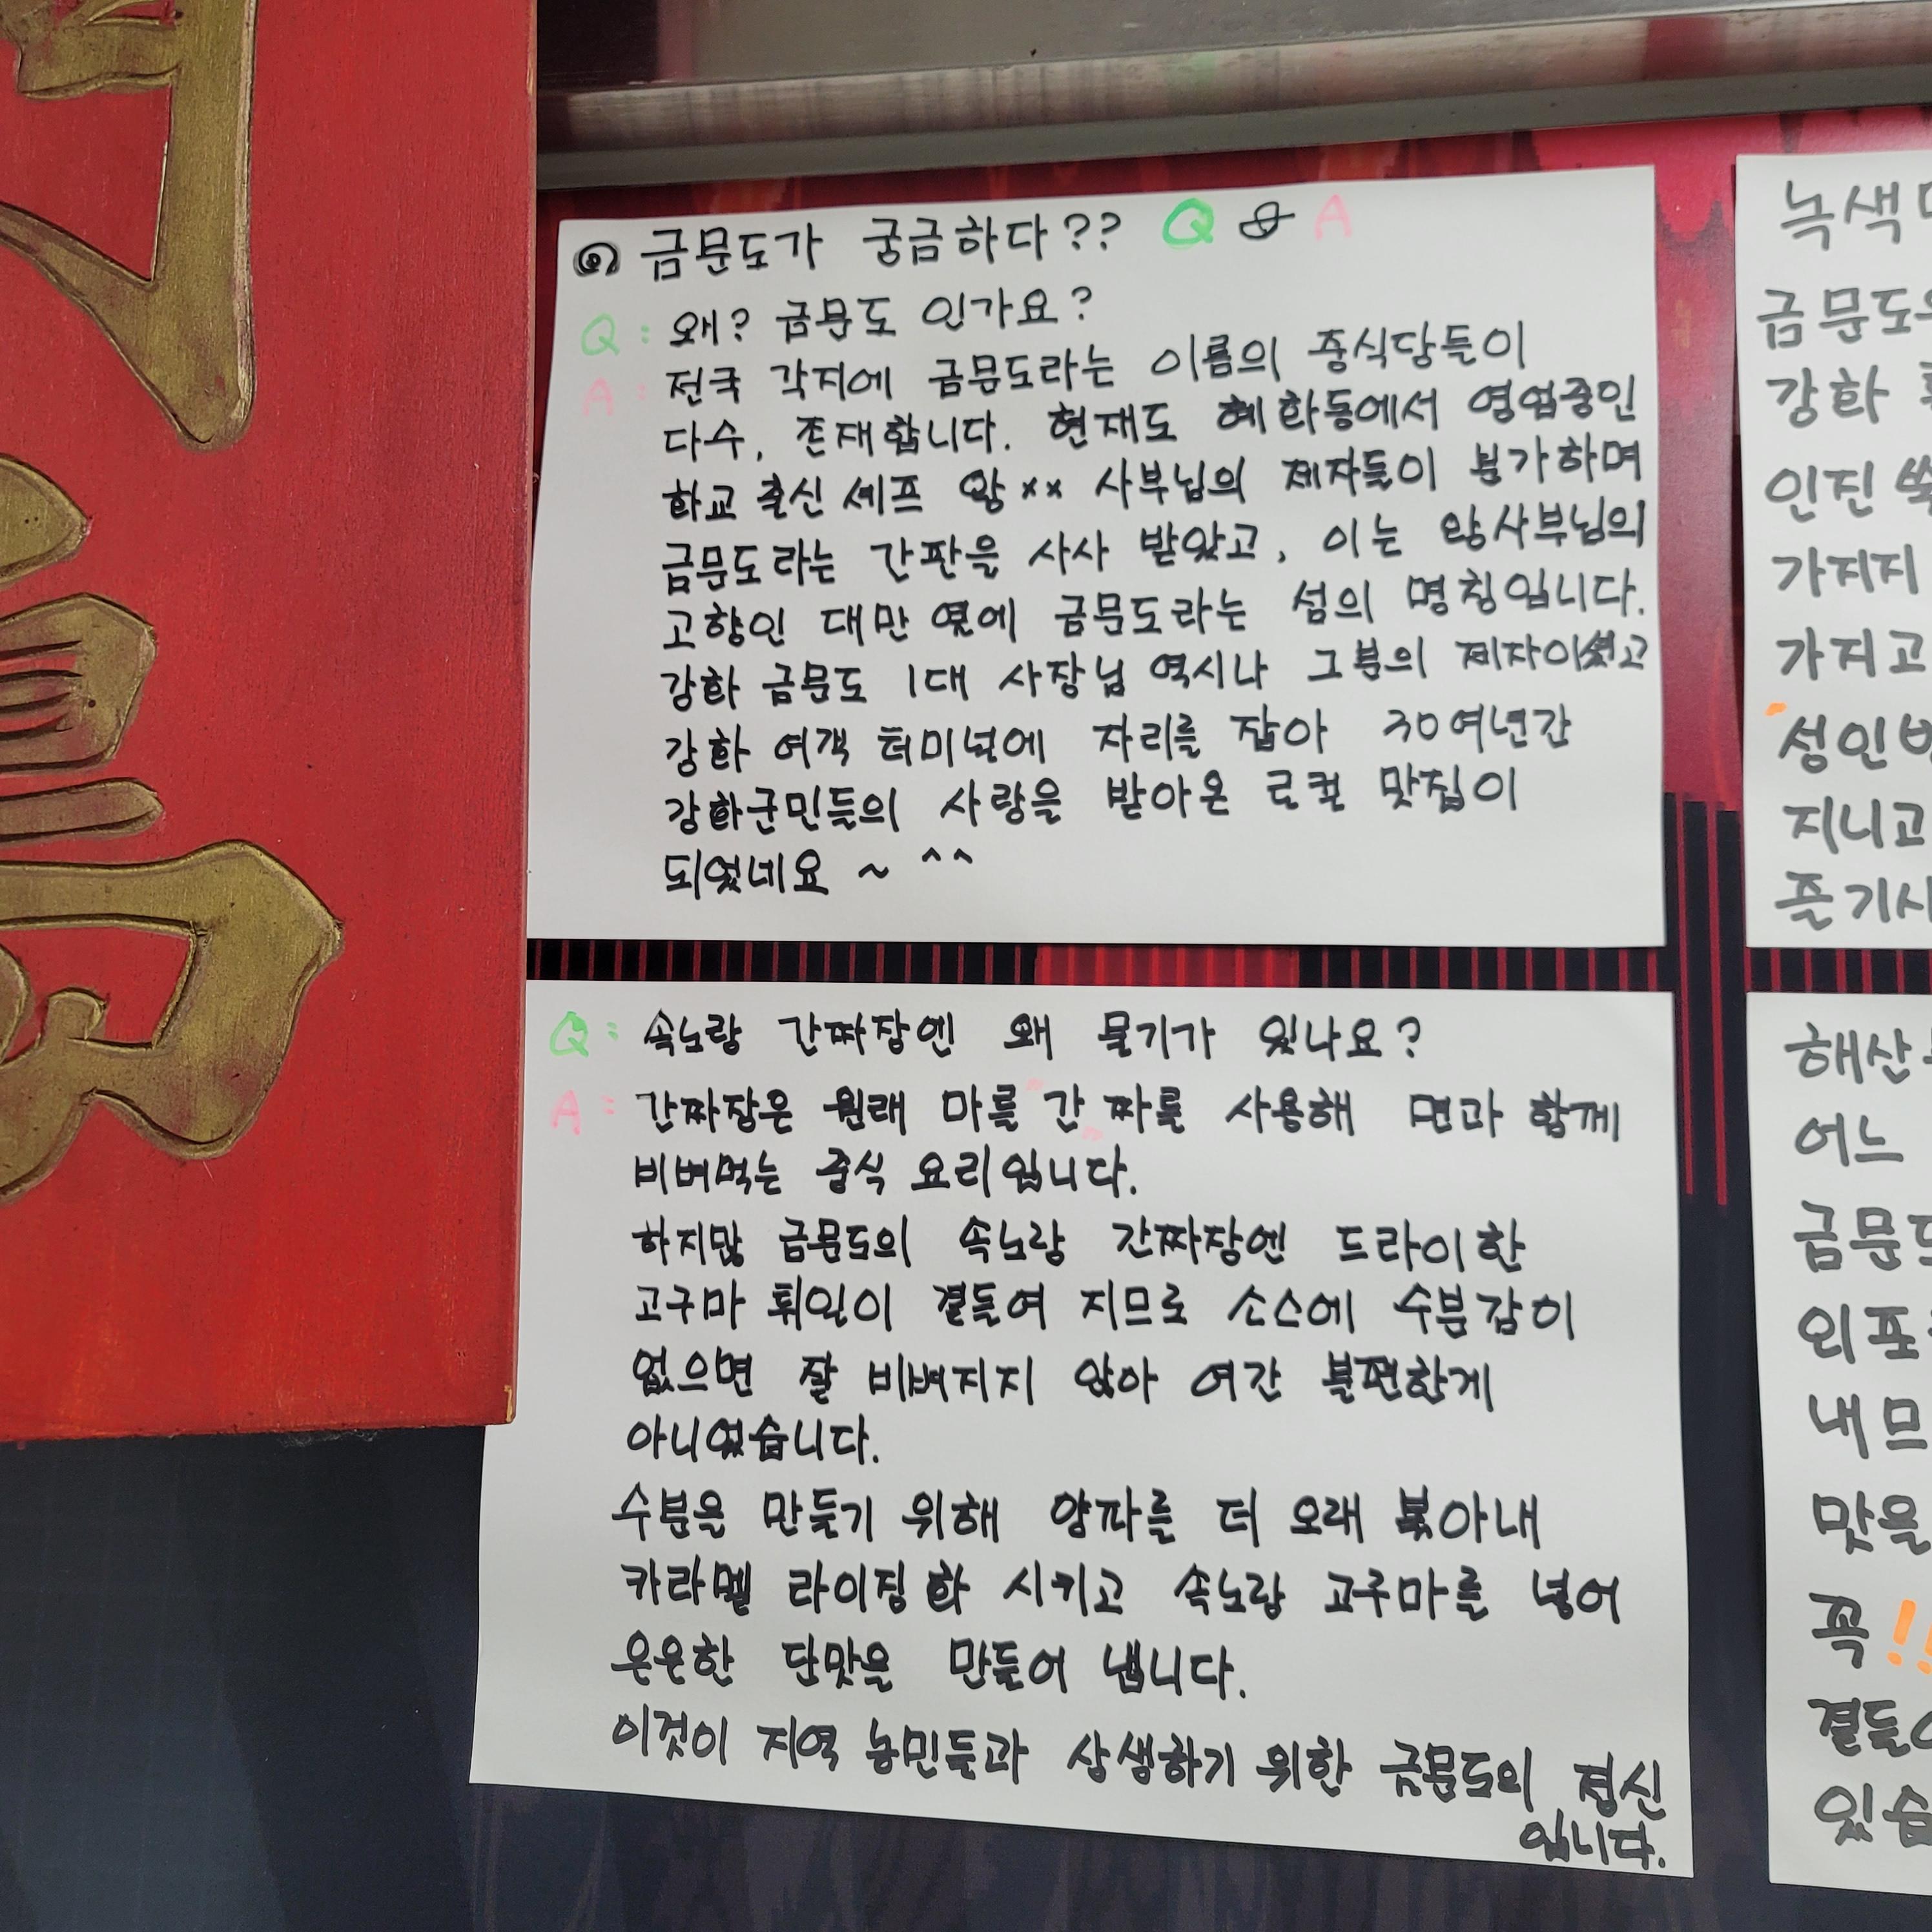 금문도가 궁금하다?? Q & A
Q: 왜? 금문도 인가요?
A: 전국 각지에 금문도라는 이름의 중식당들이
다수, 존재합니다. 현재도 혜화동에서 영업중인
화교 출신 셰프 왕xx 사부님의 제자들이 분가하며
금문도라는 간판을 사사 받았고, 이는 왕사부님의
고향인 대만 옆에 금문도라는 섬의 명칭입니다.
강화 금문도 1대 사장님 역시나 그분의 제자이셨고
강화 여객 터미널에 자리를 잡아 30여년간
강화군민들의 사랑을 받아온 로컬 맛집이
되었네요 ~ ^^
Q: 속노랑 간짜장엔 왜 물기가 있나요?
A: 간짜장은 원래 마를 간 짜를 사용해 면과 함께
비벼먹는 중식 요리입니다.
하지만 금문도의 속노랑 간짜장엔 드라이한
고구마 튀일이 곁들여 지므로 소스에 수분감이
없으면 잘 비벼지지 않아 여간 불편한게
아니었습니다.
수분을 만들기 위해 양파를 더 오래 볶아내
카라멜 라이징화 시키고 속노랑 고구마를 넣어
은은한 단맛을 만들어 냅니다.
이것이 지역 농민들과 상생하기 위한 금문도의 정신
입니다.
녹색
금문도
강화
인진
가지지
가지고
성인
지니고
즐기시
해산
어느
금문도
외포
내므
맛을
꼭!!
곁들
있습